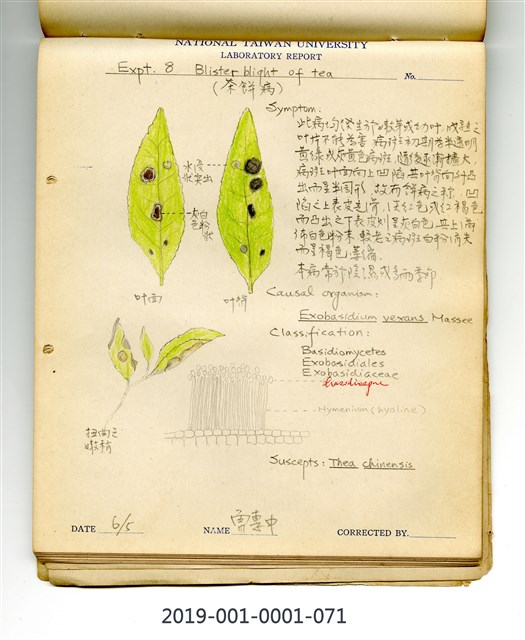 NATIONAL TAIWAN UNIVERSITY
LABORATORY REPORT
Expt. 8 Blister blight of tea
No.
(茶餅病)
Symptom:
此病均發生於嫩芽或幼叶,成熟之
叶片不能為害 病斑初期為半透明
黃綠或灰黃色病斑,隨後逐漸擴大
病斑叶面向上凹陷其叶背向外凸
出而呈半圓形 故有餅病之称,凹
陷之上表皮光滑,淡紅色或紅褐色
而凸出之下表皮則呈灰白色,其上佈
白色粉末 較老之病斑白粉消失
而呈褐色萎縮
本病常於陰濕或多雨季節
水浸
狀突出
灰白
色粉
狀
叶面
叶背
Causal organism:
Exobasidium vexans Massee
Classification:
Basidiomycetes
Exobasidiales
Exobasidiaceae
Basidiospore
Hymenium (hyaline)
扭曲之
嫩梢
Suscepts: Thea chinensis
DATE 6/5
NAME
CORRECTED BY.
2019-001-0001-071